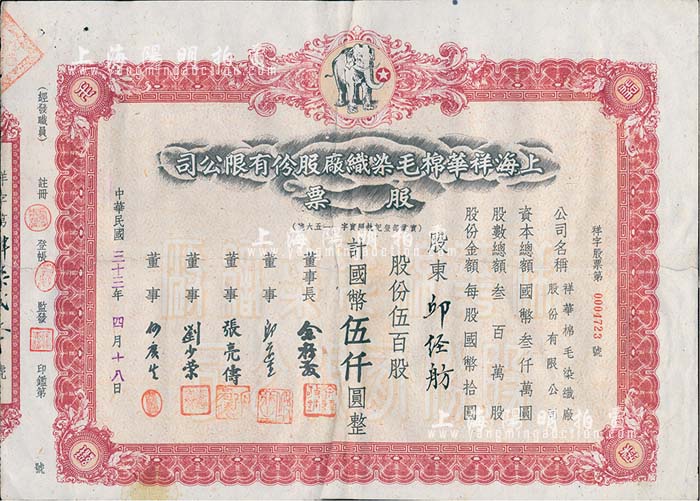 上海陽明拍賣
www.yangmingauction.com
上海祥華棉毛染織廠股份有限公司
股票
祥字股票第0004723號
公司名稱 祥華棉毛染織廠股份有限公司
資本總額國幣叁仟萬圓
股數總額叁百萬股
股份金額每股國幣拾圓
股東
股份伍百股
計國幣伍仟圓整
董事長
董事
董事 張亮傳
董事 劉少榮
董事
中華民國三十二年四月十八日
(經發職員)
註冊
登帳
監發
印鑑第
號
上海陽明拍賣
www.yangmingauction.com